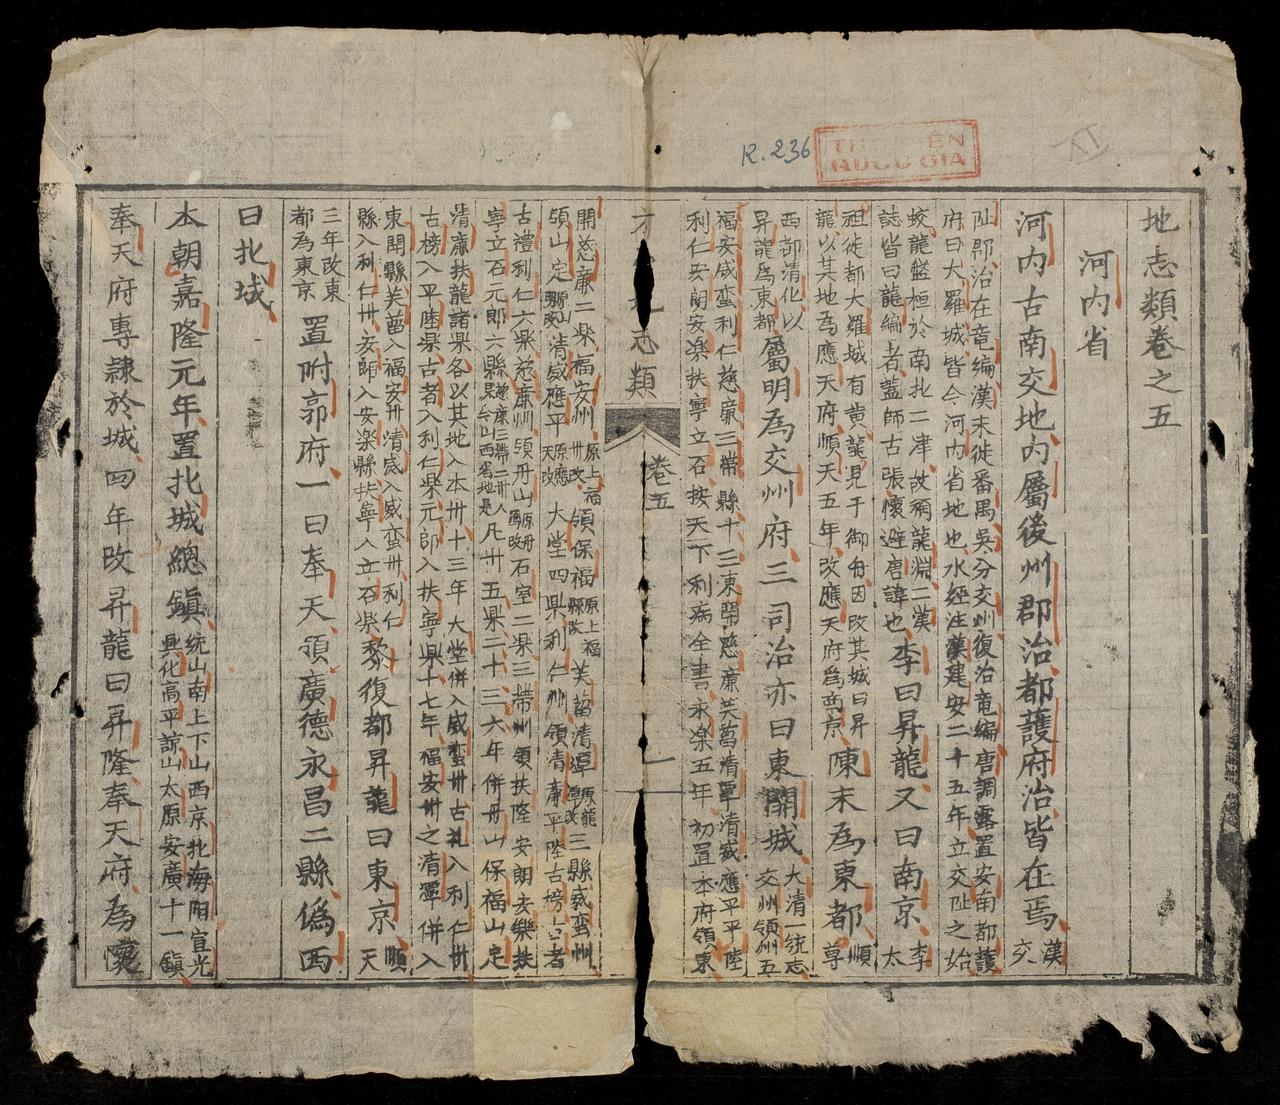 R.236
QUỐC GIA
地志類卷之五
河内省
河内古南交地内屬後州郡治都護府治皆在焉漢交
趾郡治在竜編漢末徙番禺吳分交州復治竜編唐調露置安南都護
府曰大羅城皆今河内省地也水經注漢建安二十五年立交趾之始
蛟龍盤桓於南北二津故稱龍淵二漢
誌皆曰龍編者蓋師古張懷避唐諱也李曰昇龍又曰南京李太
祖徙都大羅城有黄龍見于御舟因改其城曰昇
龍以其地為應天府順天五年改應天府為南京陳末為東都順尊
西都清化以
昇龍為東都屬明為交州府三司治亦曰東關城大清一統志交州領州五
福安威蛮利仁慈廉三帶縣十三東關慈廉芙菖清潭清威應平平陸
利仁安朗安楽扶寧立石按天下利病全書永楽五年初置本府領東
志類
卷五
一
開慈廉二県福安州原上福州改領保福原上福縣改芙菖清潭原龍潭改三縣威蛮州
領山定清威應平原應天改大堂四県利仁州領清廉平陸古榜古者
古禮利仁六県慈廉州領丹山石室二県三帶州領扶隆安朗安樂扶
寧立石元郎六縣慈廉三帶二州今山西省地是凡州五県二十三六年併丹山保福山定
清廉扶龍諸県各以其地入本州十三年大堂併入威蛮州古礼入利仁州
古榜入平陸県古者入利仁県元郎入扶寧県十七年福安州之清潭併入
東関縣芙菖入福安州清威入威蛮州利仁
縣入利仁州安朗入安楽縣扶寧入立石県黎復都昇龍曰東京順天
三年改東
都為東京置附郭府一曰奉天領廣德永昌二縣偽西
曰北城
本朝嘉隆元年置北城總鎮統山南上下山西京北海陽宣光興化高平諒山太原安廣十一鎮
奉天府專隷於城四年改昇龍曰昇隆奉天府為懷